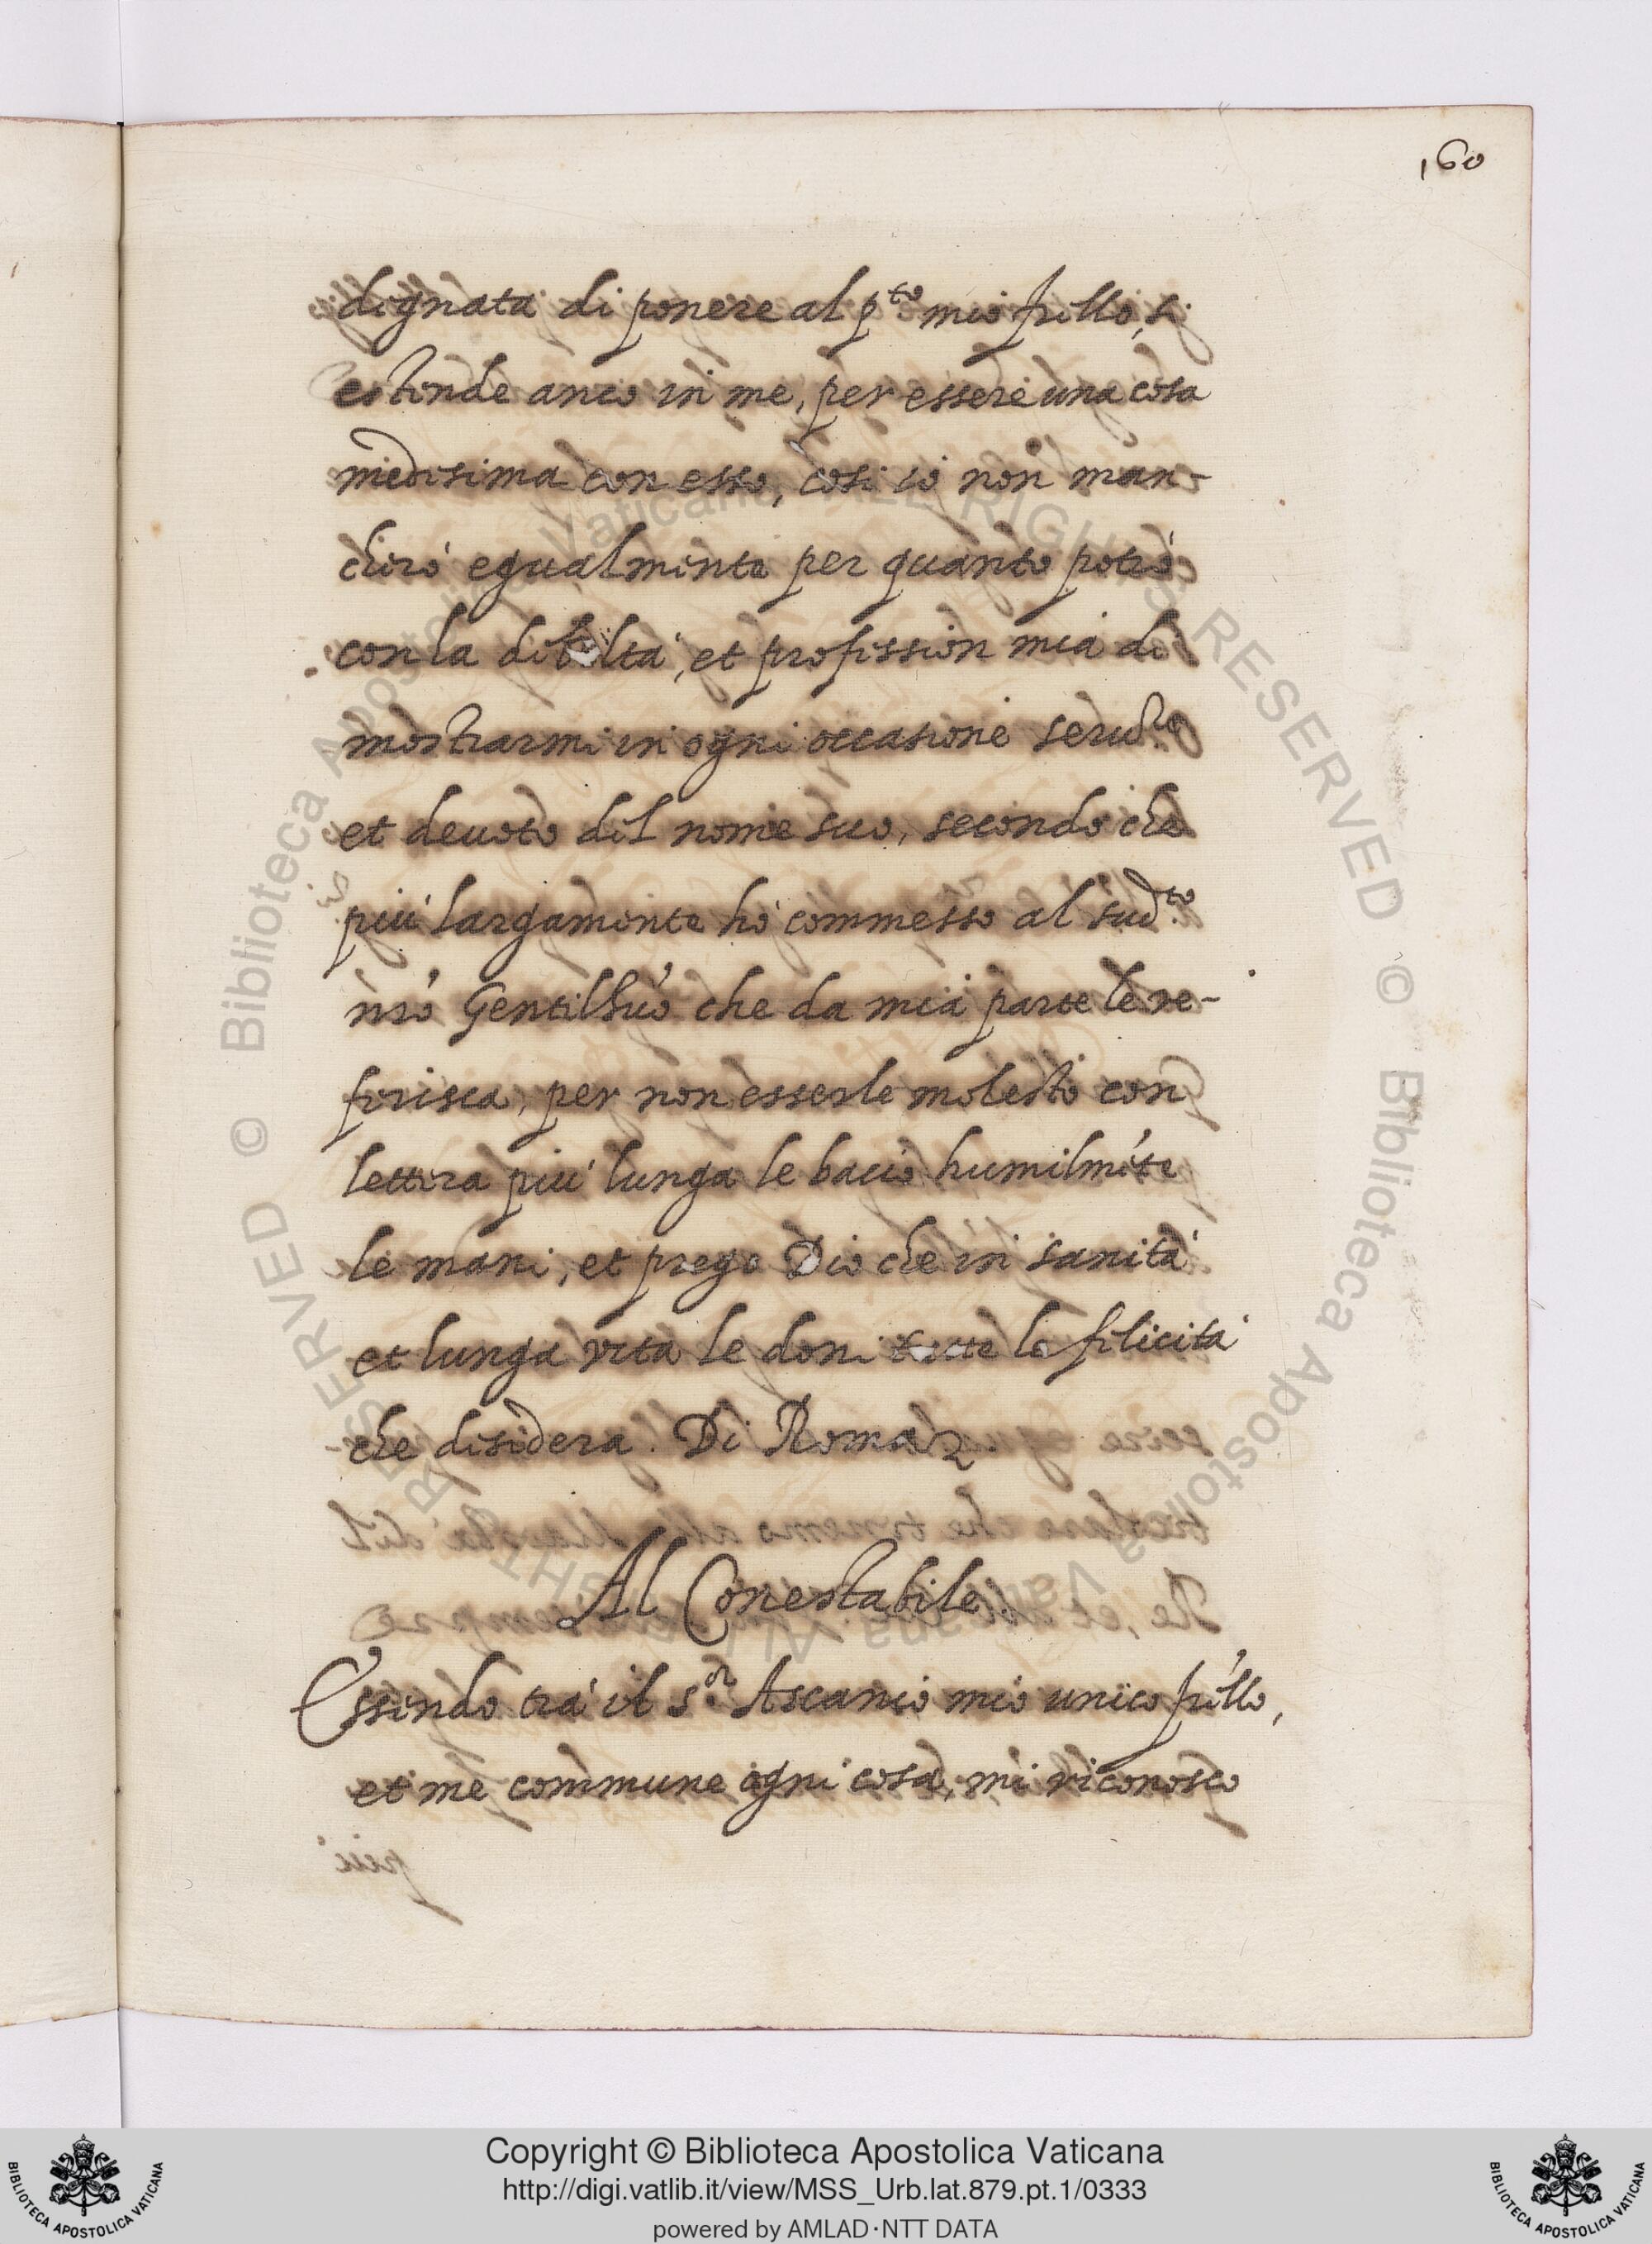 160
dignata di ponere al p.to mio frello, si
estende anco in me, per essere una cosa
medesima con esso, cosi io non man-
cherò egualmente per quanto potrò
con la debiltà, et profession mia di
mostrarmi in ogni occasione serud.re
et deuoto del nome suo, secondo che
più largamente hò commesso al sud.to
nr̃o Gentilhuõ che da mia parte le re-
ferisca, per non esserle molesto con
lettera più lunga le bacio humilmẽte
le mani, et prego Dio che in sanità
et lunga vita le doni tutte le felicità
che desidera. Di Roma
Al Conestabile.
Essendo trà il s.or Ascanio mio unico frẽllo,
et me commune ogni cosa, mi riconosco
© Biblioteca Apostolica Vaticana ALL RIGHTS RESERVED
© Biblioteca Apostolica Vaticana ALL RIGHTS RESERVED
BIBLIOTECA APOSTOLICA VATICANA
Copyright © Biblioteca Apostolica Vaticana
http://digi.vatlib.it/view/MSS_Urb.lat.879.pt.1/0333
powered by AMLAD·NTT DATA
BIBLIOTECA APOSTOLICA VATICANA